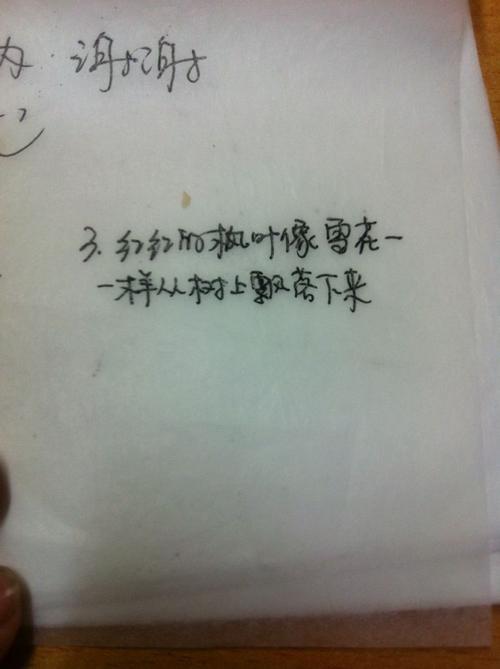 为 谢谢
3. 红红的枫叶像雪花一
一样从树上飘落下来